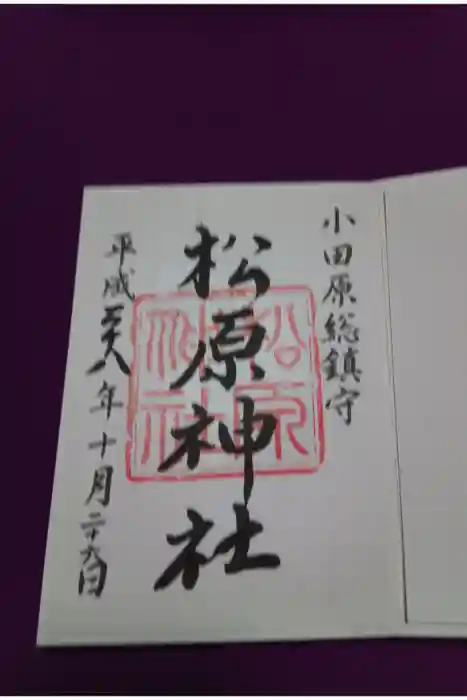 小田原総鎮守
松原神社
松原神社
平成二十八年十月二十六日